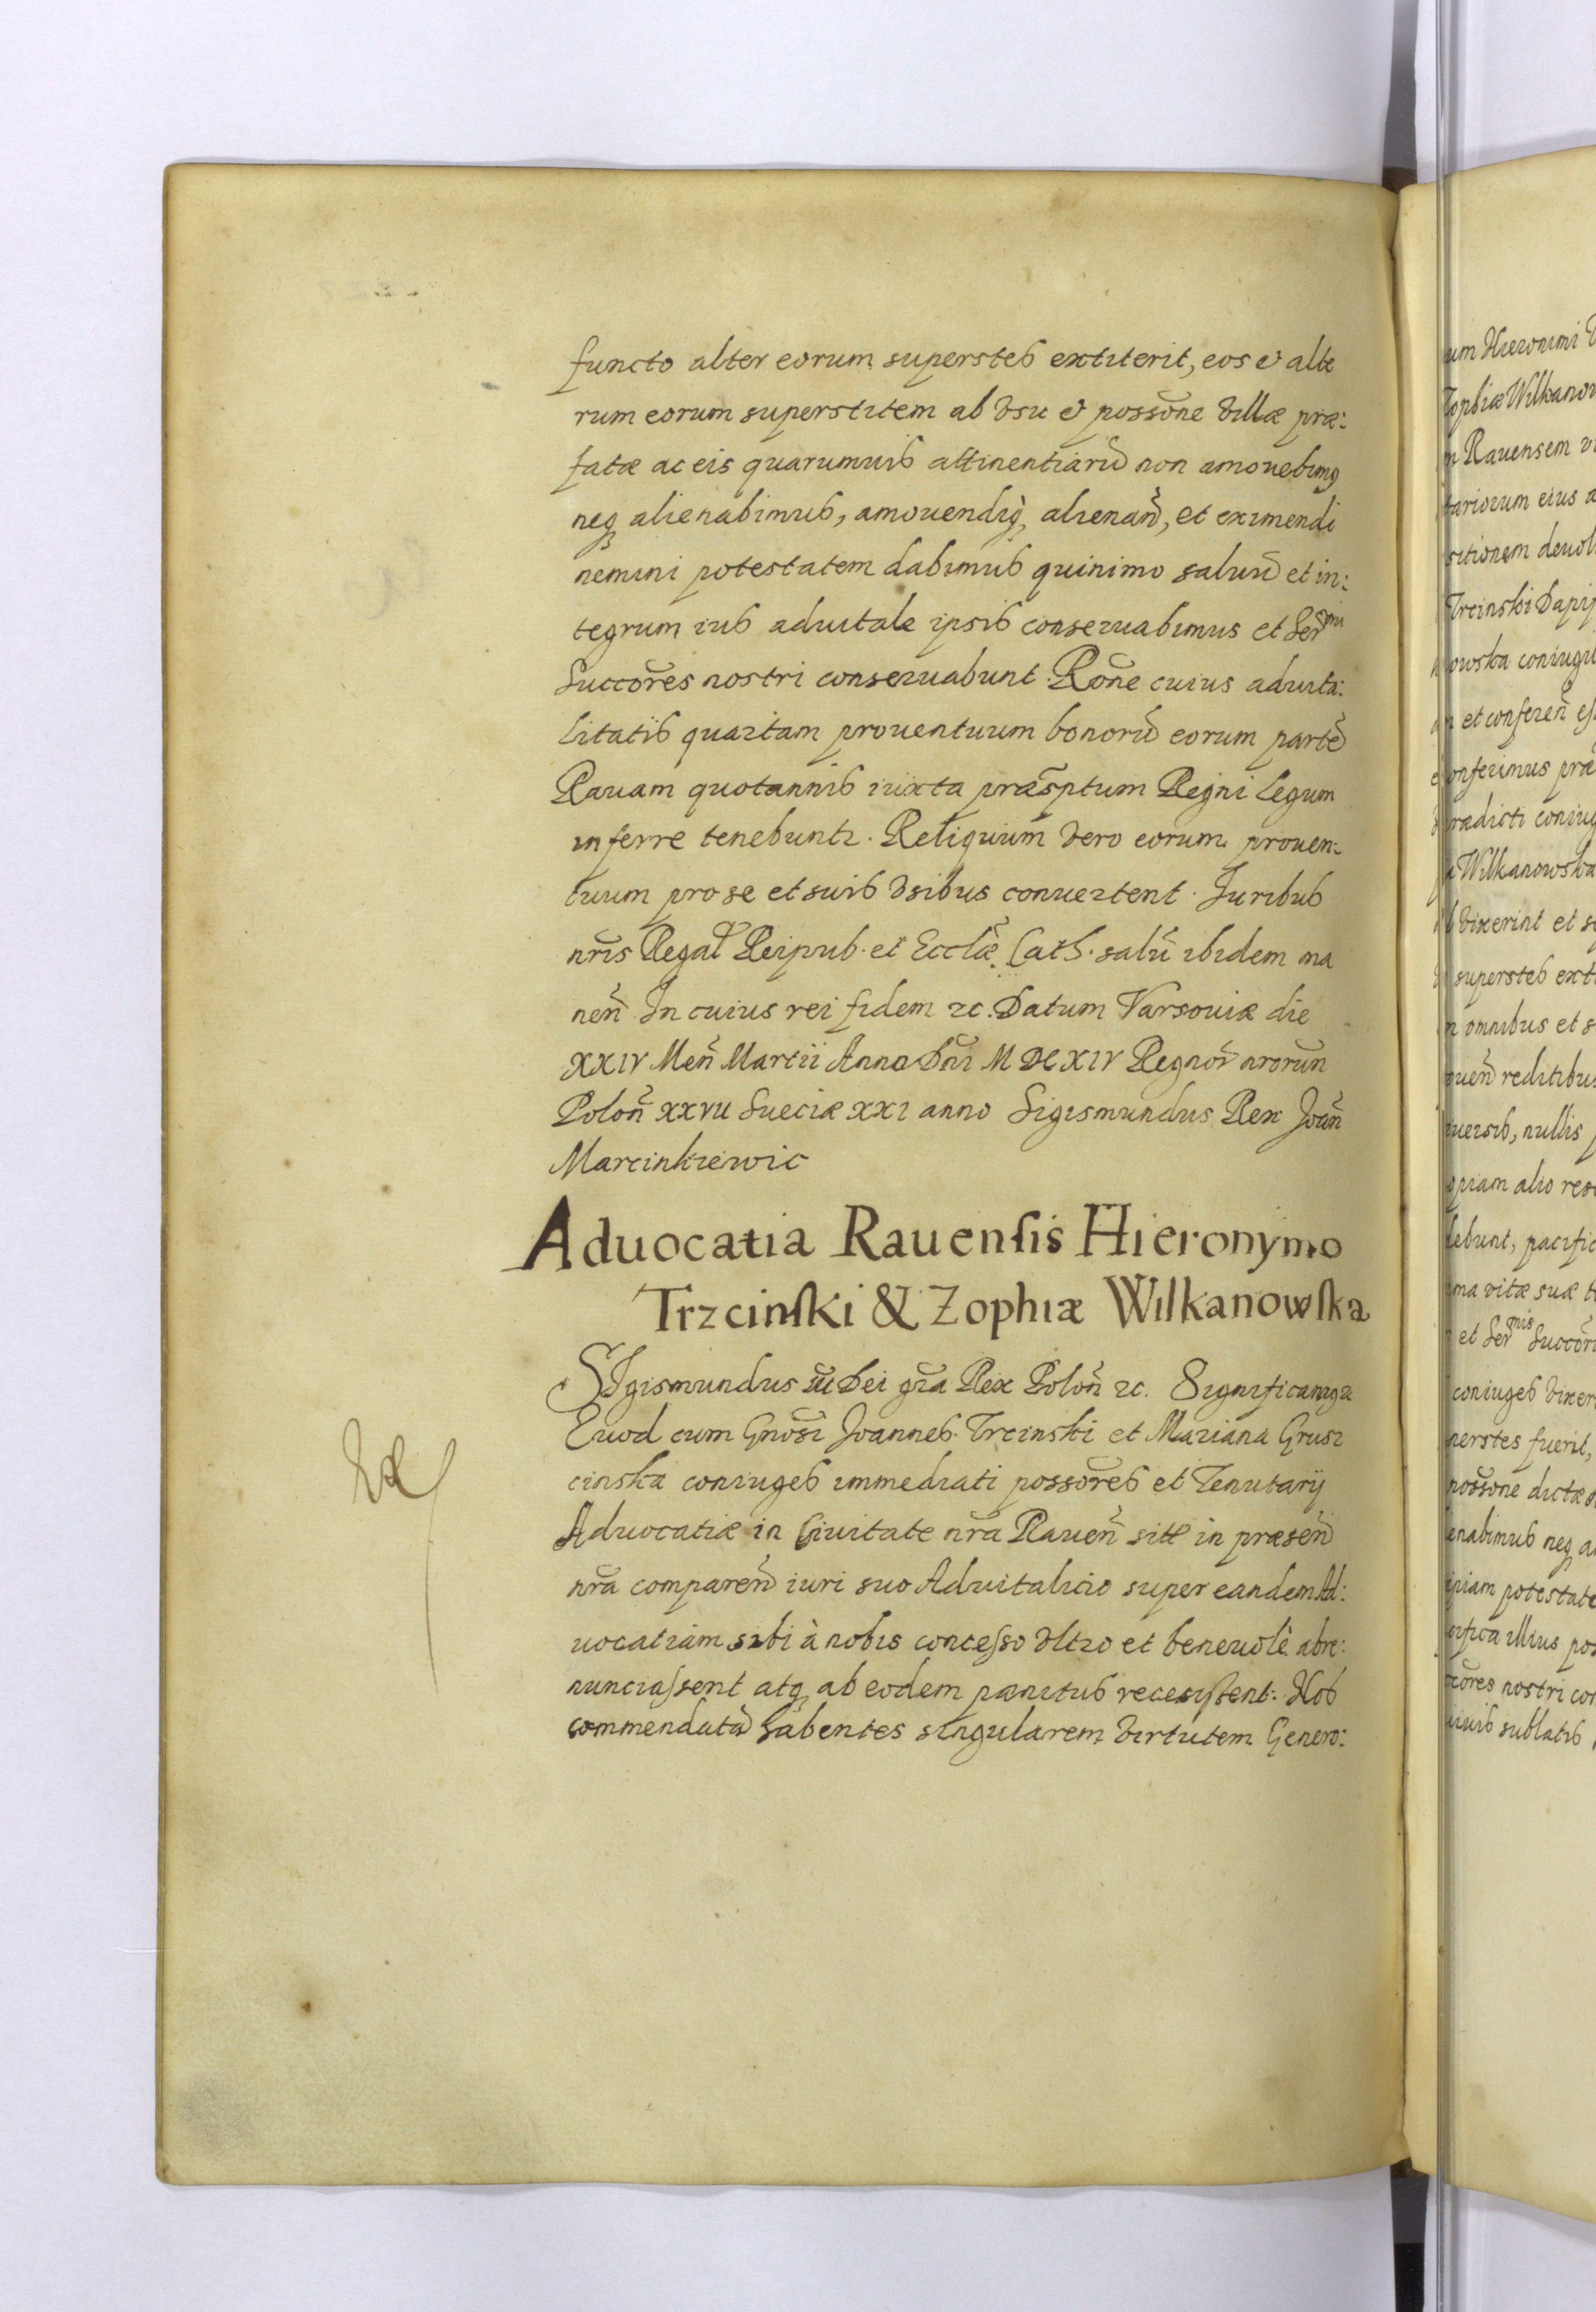 functo alter eorum superstes extiterit, eos et alte
rum eorum superstitem ab vsu et possõne villæ præ:
fatæ ac eis quarumuis attinentiarũ non amouebimꝰ
neqȝ alienabimus, amouendiqȝ, alienañ, et eximendi
nemini potestatem dabimus quinimo saluũ et in:
tegrum ius aduitale ipsis conseruabimus et Serᵐⁱ
Succõres nostri conseruabunt. Rõne cuius aduita:
litatis quartam prouentuum bonorũ eorum partẽ
Rauam quotannis iuxta præsptum Regni Legum
inferre tenebuntr. Reliquum vero eorum prouen:
tuum pro se et suis vsibus conuertent. Juribus
nr̃is Regal̃ Reipub. et Ecclæ̃ Cath. salũ ibidem ma
neñ. In cuius rei fidem ꝛc. Datum Varsouiæ die
XXIV Meñ Martii Anno Dñi M DC XIV Regnor̃ nrorũn
Poloñ XXVII Sueciæ XXI anno Sigismundus Rex Joañ
Marcinkiewic
Aduocatia Rauensis Hieronymo
Trzcinski & Zophiæ Wilkanowska
SIgismundus iii Dei gr̃a Rex Poloñ ꝛc. Significamꝰ ꝛ
Quod cum Gnosi Joannes Trcinski et Mariana Grusz
cinska coniuges immediati possõres et Tenutarij
Aduocatiæ in Ciuitate nr̃a Raueñ sitæ in præseñ
nr̃a compareñ iuri suo Aduitalicio super eandem Ad:
uocatiam sibi à nobis concesso vltro et beneuolè abre:
nunciassent atqȝ ab eodem pænitus recesissent. Nos
commendatã habentes singularem virtutem Genero:
um Hieronimi
Zophiæ Wilkanow
Rauensem
tariorum eius a
sitionem deuol
Trcinski Dapif
owska coniugu
et confereñ es
onferimus præ
radicti coniug
Wilkanowska
vixerint et s
superstes ext
omnibus et s
ueñ reditibus
uersis, nullis
piam alio res
lebunt, pacific
ma vitæ suæ t
et Serᵐⁱˢ Succõr
coniuges vixer
perstes fuerit,
possõne dictæ
enabimus neqȝ a
ipiam potestate
cifica illius pos
cõres nostri con
iuis sublatis